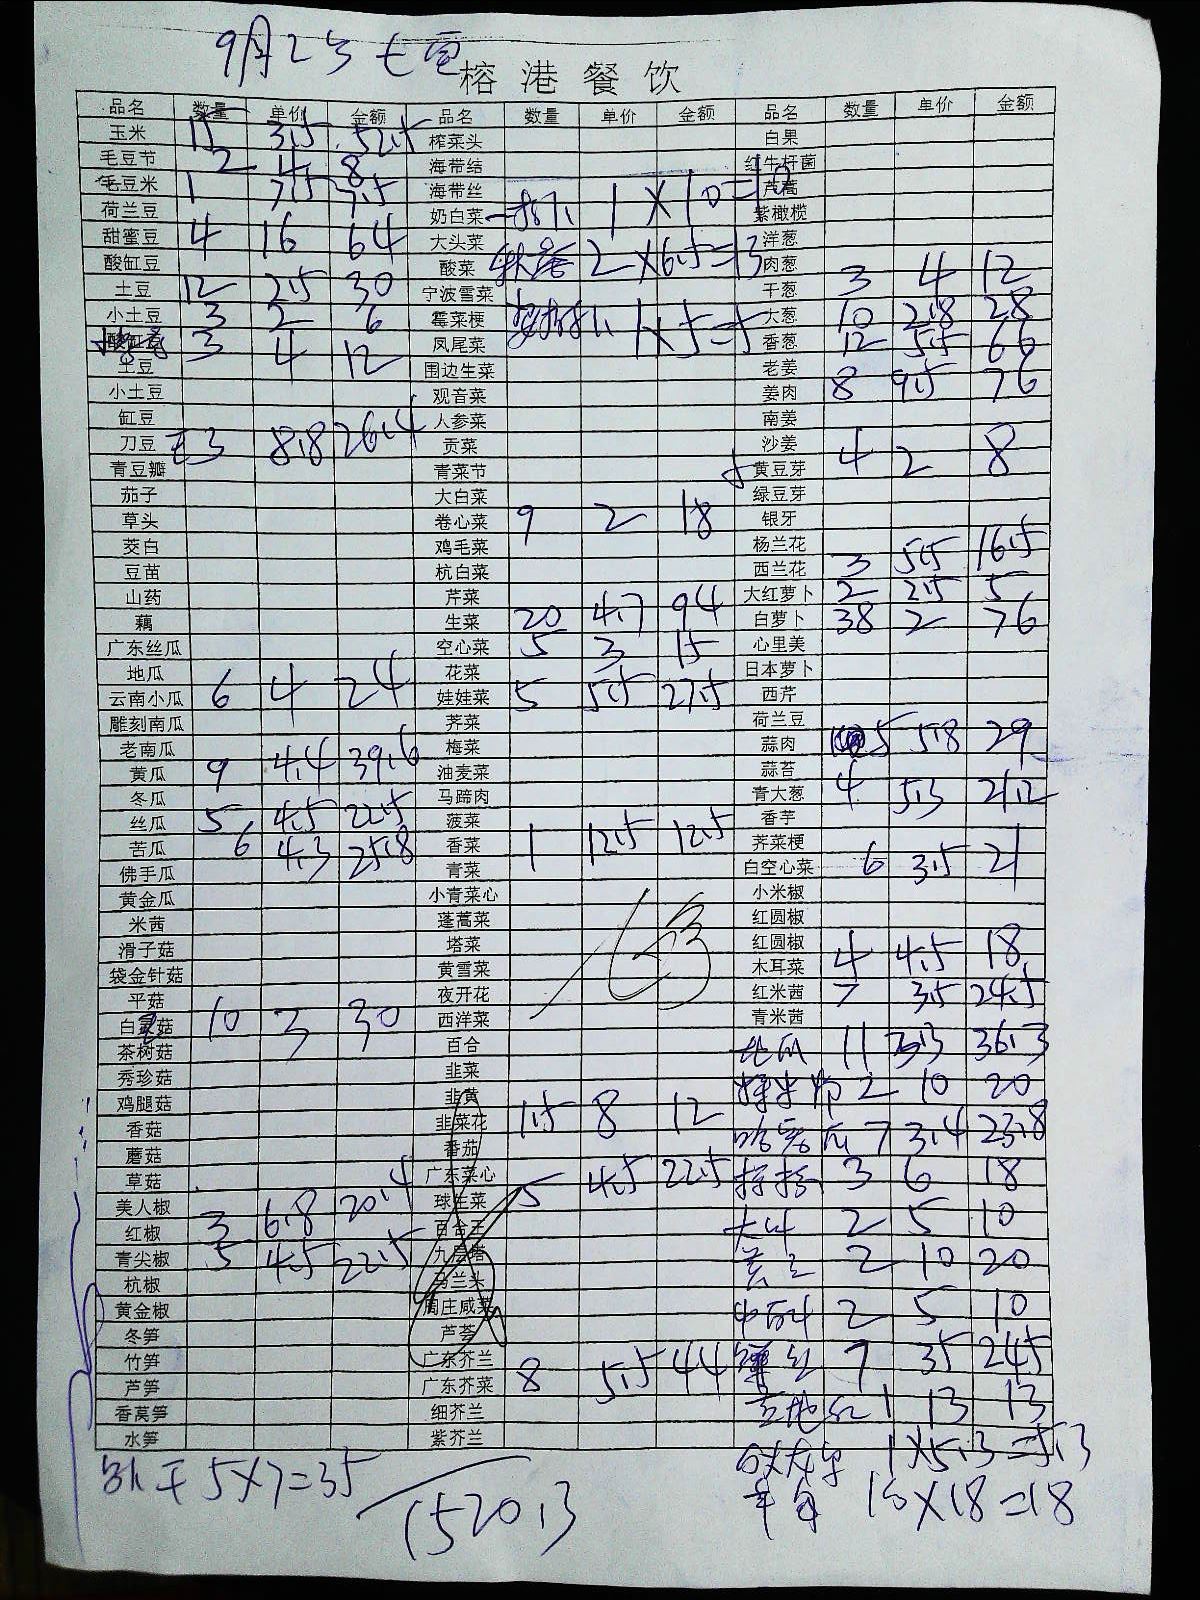 9月2号
榕港餐饮
品名 数量 单价 金额 品名 数量 单价 金额 品名 数量 单价 金额
玉米 3.5 52.5 榨菜头 白果
毛豆节 2 4 8 海带结 红牛杆菌
毛豆米 1 7.5 7.5 海带丝 芦蒿
荷兰豆 奶白菜 1×10=10 紫橄榄
甜蜜豆 4 16 64 大头菜 洋葱
酸缸豆 酸菜 2×6.5=13 肉葱
土豆 12 2.5 30 宁波雪菜 干葱 3 4 12
小土豆 3 2 6 霉菜梗 1×5=5 大葱 10 2.8 28
3 4 12 凤尾菜 香葱 12 5.5 66
土豆 围边生菜 老姜
小土豆 观音菜 姜肉 8 9.5 76
缸豆 人参菜 南姜
刀豆 3 8.8 26.4 贡菜 沙姜
青豆瓣 青菜节 黄豆芽 4 2 8
茄子 大白菜 绿豆芽
草头 卷心菜 9 2 18 银牙
茭白 鸡毛菜 杨兰花
豆苗 杭白菜 西兰花 3 5.5 16.5
山药 芹菜 大红萝卜 2 2.5 5
藕 生菜 20 4.7 94 白萝卜 38 2 76
广东丝瓜 空心菜 5 3 15 心里美
地瓜 花菜 日本萝卜
云南小瓜 6 4 24 娃娃菜 5 5.5 27.5 西芹
雕刻南瓜 荠菜 荷兰豆
老南瓜 梅菜 蒜肉 5 5.8 29
黄瓜 9 4.4 39.6 油麦菜 蒜苔
冬瓜 马蹄肉 青大葱 4 5.3 21.2
丝瓜 5 4.5 22.5 菠菜 香芋
苦瓜 6 4.3 25.8 香菜 1 12.5 12.5 荠菜梗
佛手瓜 青菜 白空心菜 6 3.5 21
黄金瓜 小青菜心 小米椒
米茜 蓬蒿菜 红圆椒
滑子菇 塔菜 红圆椒
袋金针菇 黄雪菜 木耳菜 4 4.5 18
平菇 夜开花 红米茜 7 3.5 24.5
白灵菇 10 3 30 西洋菜 青米茜
茶树菇 百合 11 3.3 36.3
秀珍菇 韭菜 2 10 20
鸡腿菇 韭黄 哈密瓜 7 3.4 23.8
香菇 韭菜花 1.5 8 12
蘑菇 番茄 3 6 18
草菇 广东菜心 5 4.5 22.5
美人椒 球生菜 2 5 10
红椒 3 6.8 20.4 百合王 2 10 20
青尖椒 5 4.5 22.5 九层塔
杭椒 马兰头 2 5 10
黄金椒 周庄咸菜
冬笋 芦荟 7 3.5 24.5
竹笋 广东芥兰
芦笋 广东芥菜 8 5.5 44 1 13 13
香莴笋 细芥兰
水笋 紫芥兰 1×5.3=5.3
5×7=35 1520.3 18=18